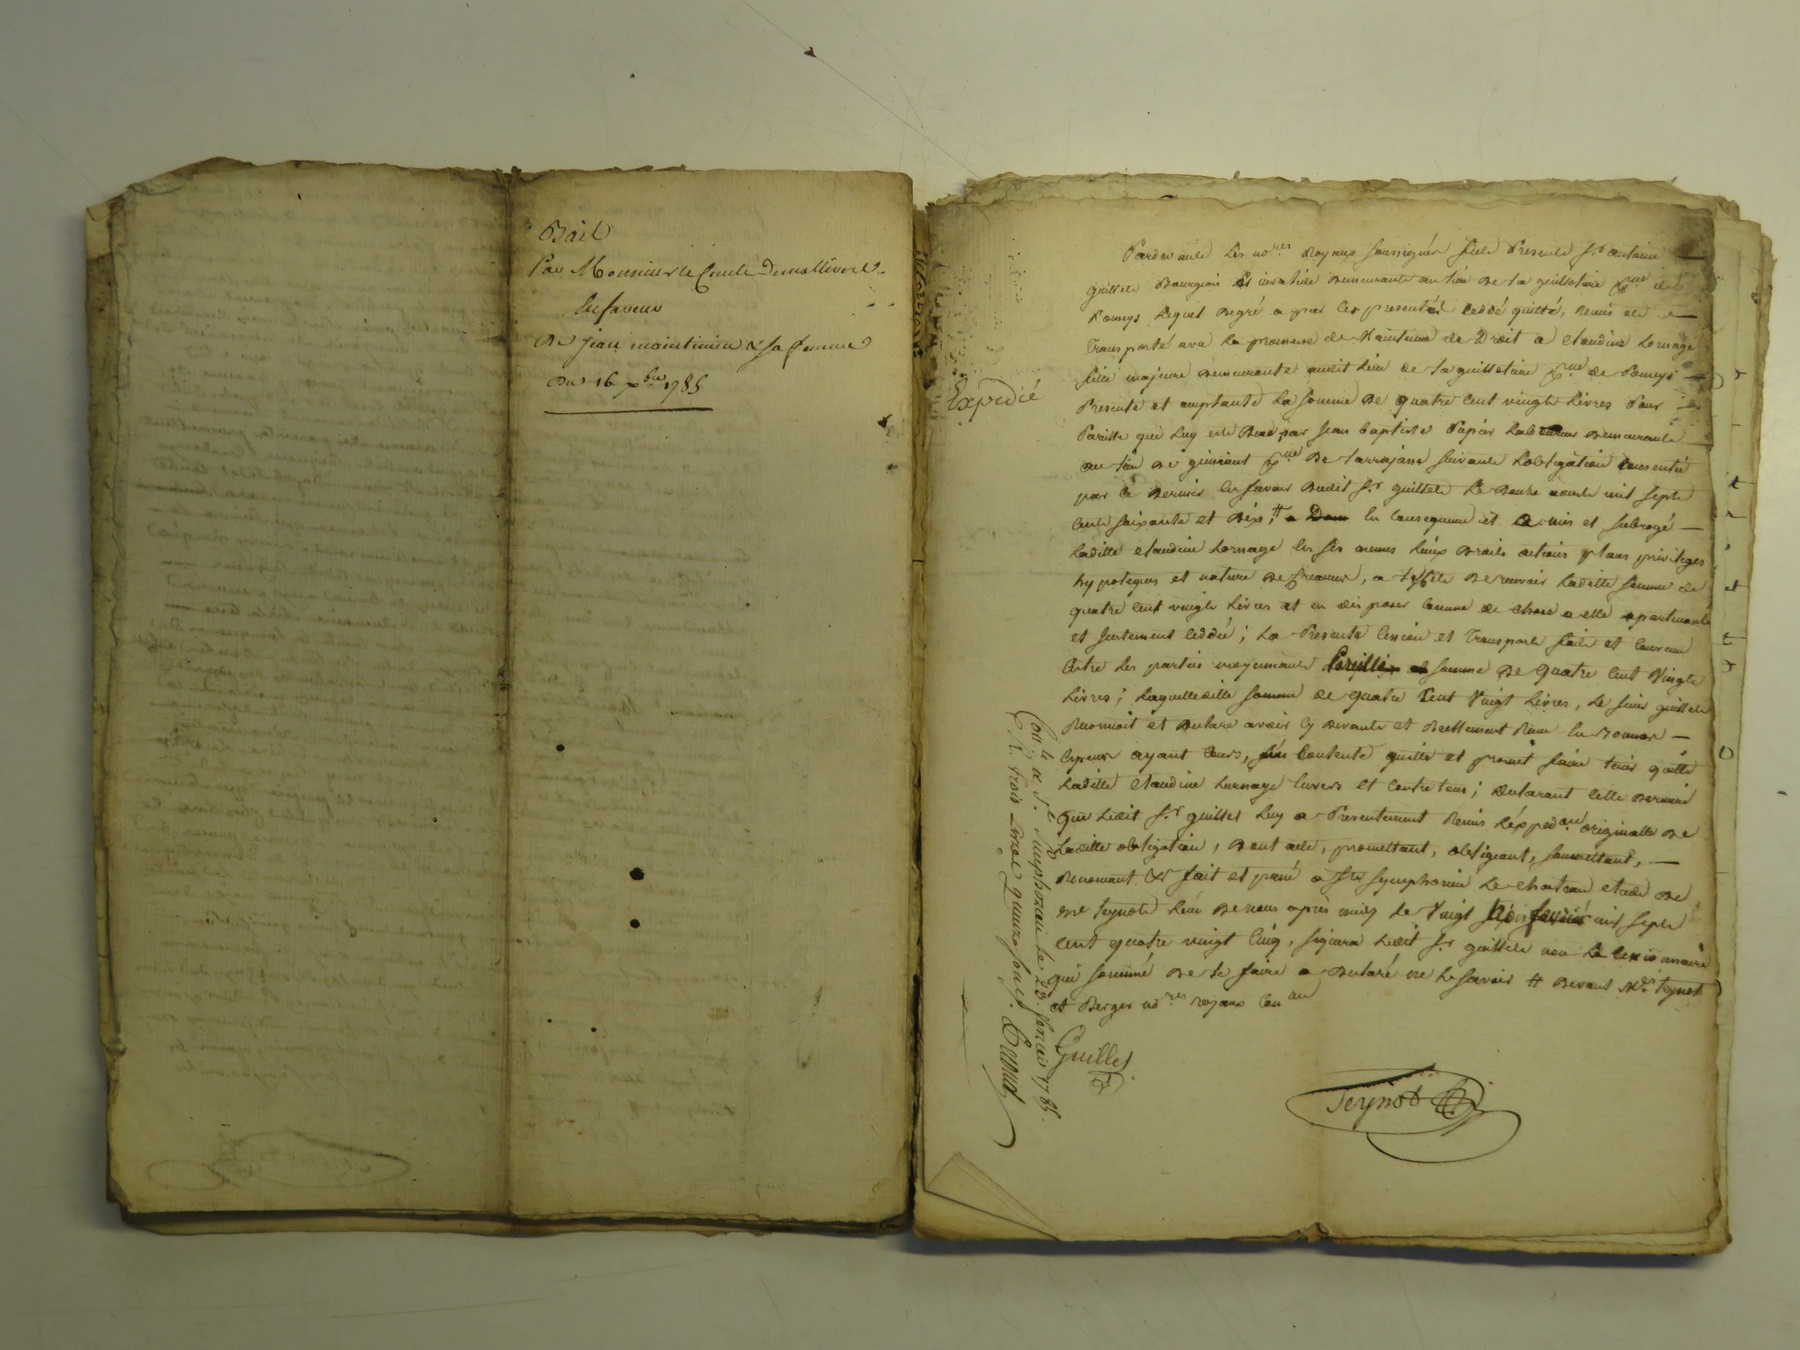 Bail
Par Monsieur le Comte Demallivert
En faveur
De jean maintinieu & sa femme
Du 16 xbre 1785
Expedié
Pardevant Les nores Royaux soussignés fut Present sr antoine
guillet Bourgeois et demeurant au lieu De la guillotiere psse de
Pomeys Lequel Degré a par les presentes Ceddé quitté, Remis et
Transporté avec La promesse de Maintenue de Droit a Claudine Lornage
fille majeure Demeurante audit Lieu de La guillotiere psse de Pomeys
Presente et acceptante La somme De quatre Cent vingt Livres Pour
Pareille que Luy est Deue par Jean baptiste Papir Laboureur Demeurant
au lieu De psse De Larrajasse suivant Lobligation Consentie
par ce Dernier En faveur Dudit sr guillet Le Douze aoust mil sept
Cent soixante et Dix, # En Consequence il a mis et subrogé
Ladite Claudine Lornage En ses mesmes Lieux Droits actions places privileges
hypoteques et nature De Creance, a Leffet De recevoir Ladite somme de
quatre Cent vingt Livres et en disposer Comme de chose a elle apartenante
et justement Ceddée; La Presente Cession et Transport fait et Convenu
Entre Les parties moyennant Pareille somme De quatre Cent Vingt
Livres; Laquelle dite somme de quatre Cent Vingt Livres, Le sieur guillet
Reconnoit et Declare avoir Cy Devant et Reellement Receu En
Especes ayant Cours, sen Contente quitte et promet faire tenir quitte
Ladite Claudine Lornage Envers et Contre tous; Declarant Cette Derniere
que Ledit sr guillet Luy a Presentement Remis Lexpedon originalle De
Ladite obligation, Dont acte, promettant, obligeant, soumettant,
Renonçant &a fait et passé a St Symphorien Le Chateau etude De
me Teynot Lun De nous après midy Le Vingt fevrier mil sept
Cent quatre vingt Cinq, signera Ledit sr guillet non La Cessionnaire
qui sommé De Le faire a Declaré ne Le savoir # Devant Mes Teynot
et Berger nores royaux
Guillet
Teynot
Conlé a St Simphorien Le 23 fevrier 1785.
R. trois Livres quinze sous.